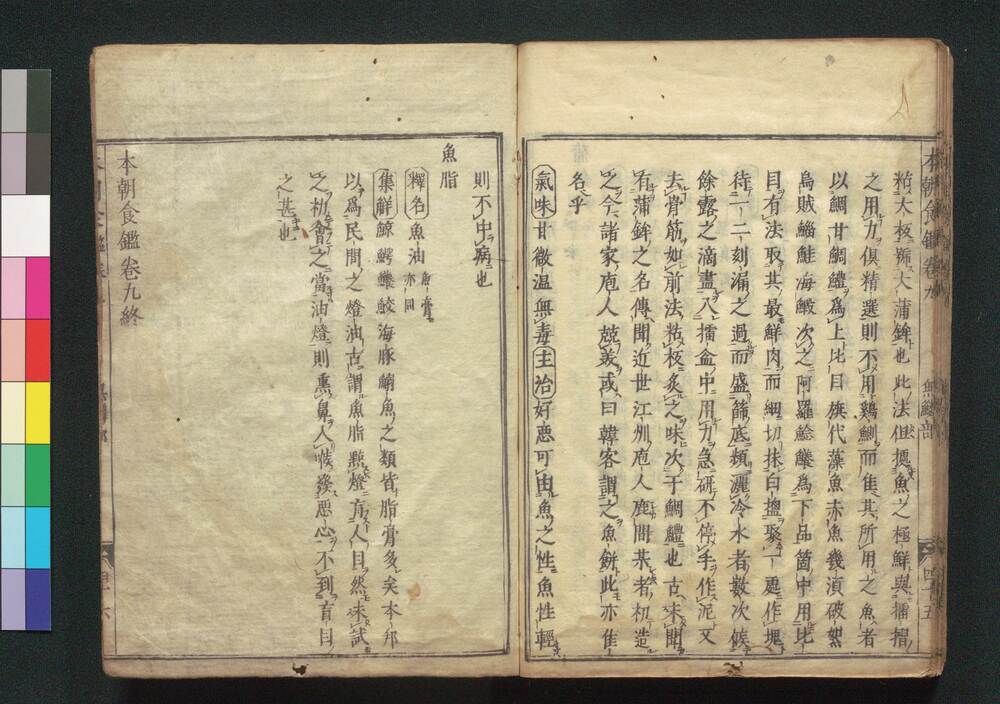 粘大板號大蒲鉾也此法但擇魚之極鮮與擂擂
之用力俱精選則不用鷄鰂而隹其所用之魚者
以鯛甘鯛鱧爲上比目旗代藻魚赤魚幾須破
烏賊鯔鮭海鰕次之阿羅鯰鱶爲下品箇中用比
目有法取其最鮮肉而細切抹白搵聚一處作塊
待一二刻漏之過而盛篩底頻灑冷水者數次候
餘露之滴盡入擂盆中用力急研不停手作泥又
去骨筋如前法粘板炙之味次于鯛鱧也古未聞
有蒲鉾之名傳聞近世江州庖人鹿間某者初造
之今諸家庖人競美或曰韓客謂之魚餅此亦隹
名乎
氣味甘微温無毒主治好悪可由魚之性魚性輕
本朝食鑑卷九
無鱗部
四十五
則不中病也
魚脂
釋名魚油魚膏亦同
集觧鯨鰐鱶鮫海豚魚之類皆脂膏多矣本邦
以爲民間之燈油古謂魚脂㸃燈盲人目然未試
之初會之當油燈則熏鼻人喉發悪心不到盲目
之甚也
本朝食鑑卷九終